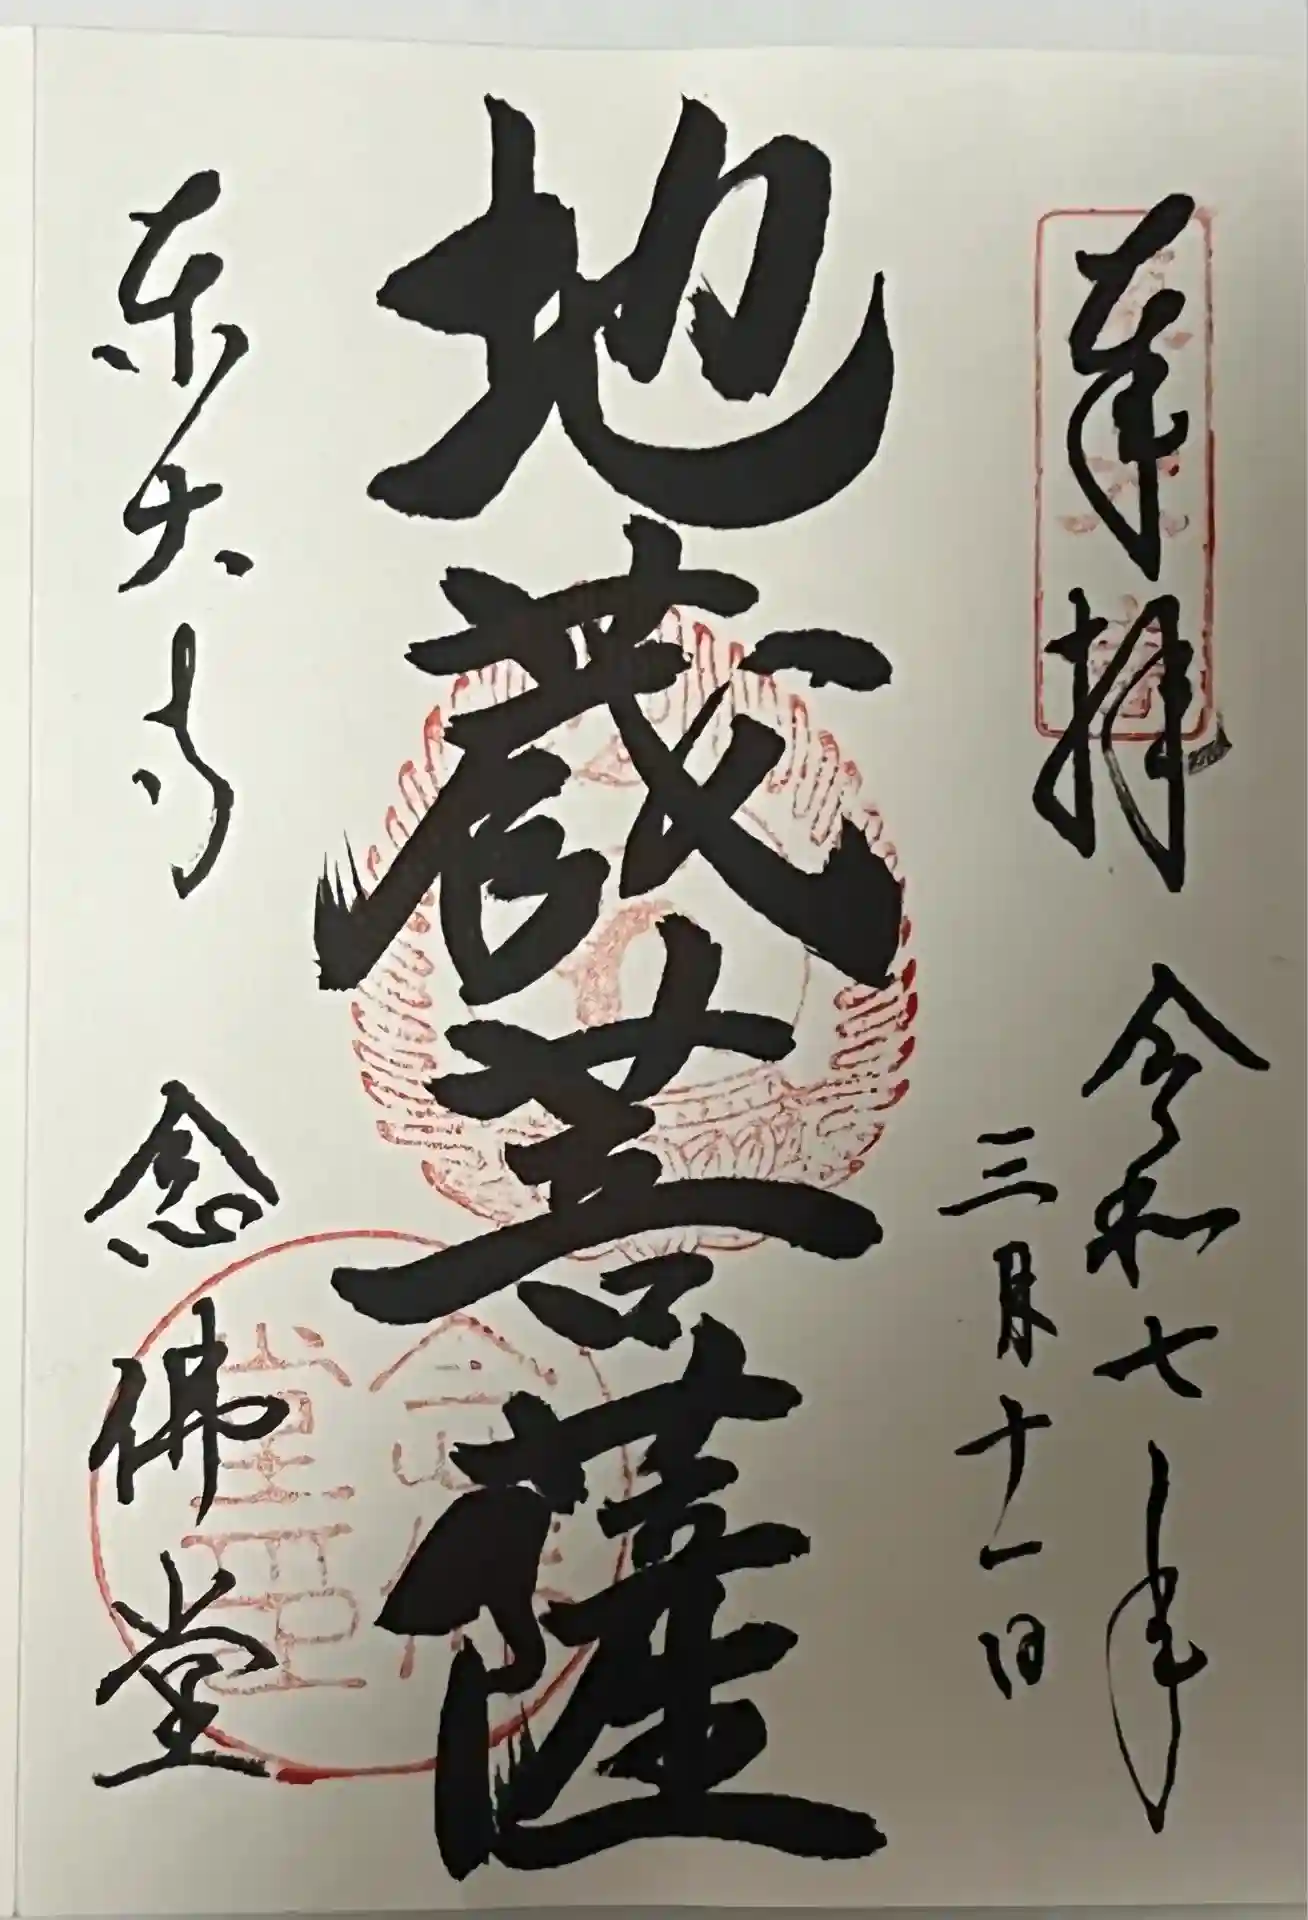 奉拝
令和七年
三月十一日
地蔵菩薩
東大寺 念佛堂